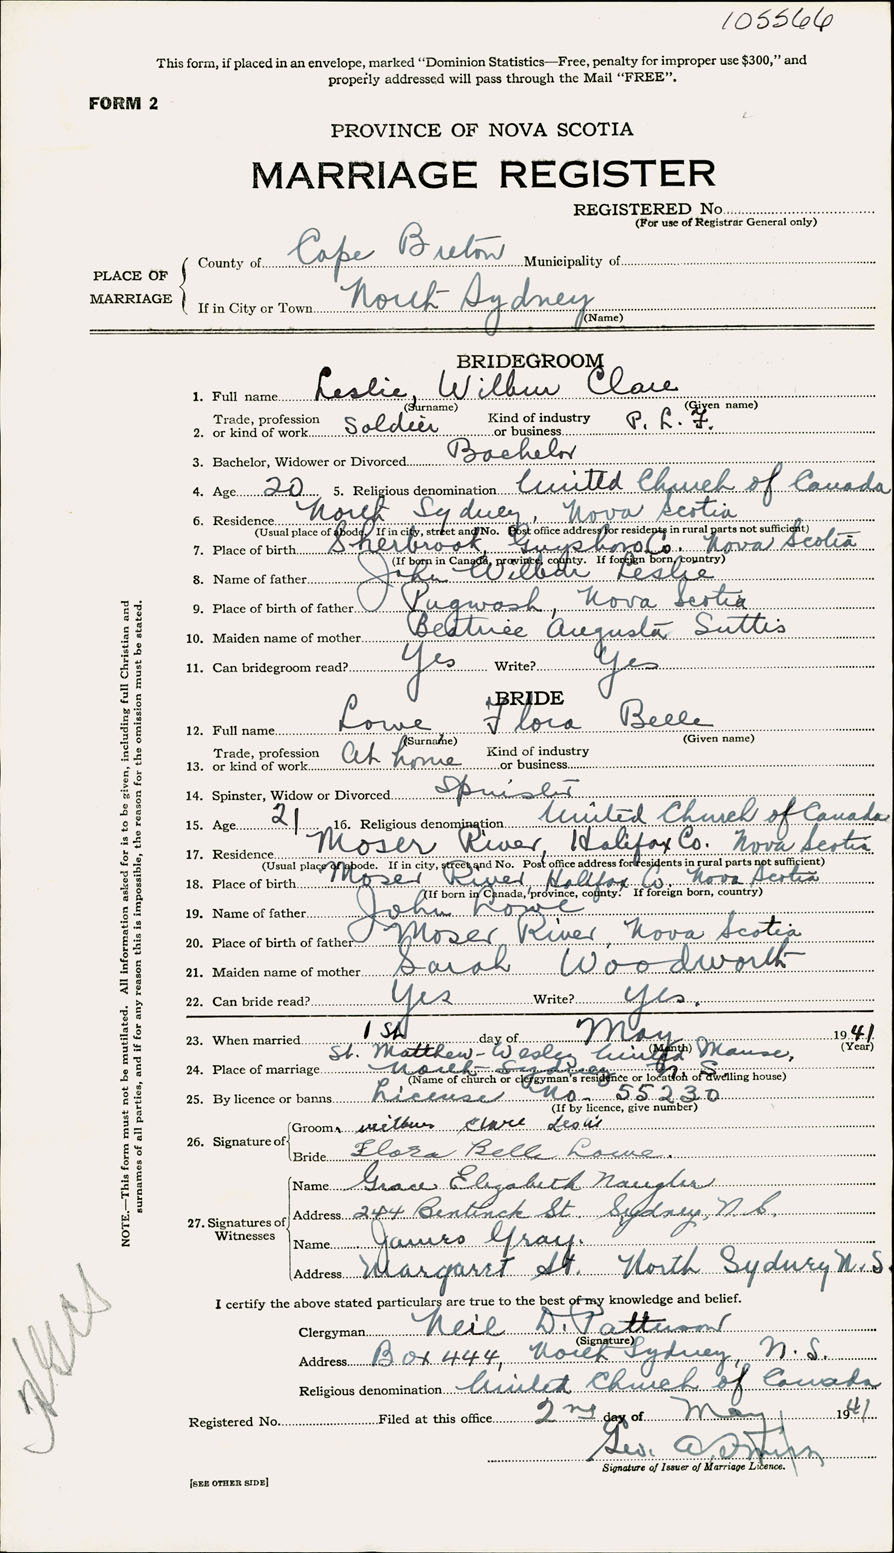 105566
This form, if placed in an envelope, marked "Dominion Statistics—Free, penalty for improper use $300," and
properly addressed will pass through the Mail "FREE".
FORM 2
PROVINCE OF NOVA SCOTIA
MARRIAGE REGISTER
REGISTERED No.
(For use of Registrar General only)
PLACE OF MARRIAGE
County of Cape Breton Municipality of
If in City or Town North Sydney
(Name)
BRIDEGROOM
1. Full name Leslie, Wilbur Clare
(Surname) (Given name)
2. Trade, profession or kind of work Soldier Kind of industry or business P. L. F.
3. Bachelor, Widower or Divorced Bachelor
4. Age 20 5. Religious denomination United Church of Canada
6. Residence North Sydney, Nova Scotia
(Usual place of abode. If in city, street and No. Post office address for residents in rural parts not sufficient)
7. Place of birth Sherbrook, Guysboro Co. Nova Scotia
(If born in Canada, province, county. If foreign born, country)
8. Name of father John Wilbur Leslie
9. Place of birth of father Pugwash, Nova Scotia
10. Maiden name of mother Beatrice Augusta Suttis
11. Can bridegroom read? Yes Write? Yes
BRIDE
12. Full name Lowe Flora Belle
(Surname) (Given name)
13. Trade, profession or kind of work At home Kind of industry or business
14. Spinster, Widow or Divorced Spinster
15. Age 21 16. Religious denomination United Church of Canada
17. Residence Moser River, Halifax Co. Nova Scotia
(Usual place of abode. If in city, street and No. Post office address for residents in rural parts not sufficient)
18. Place of birth Moser River, Halifax Co. Nova Scotia
(If born in Canada, province, county. If foreign born, country)
19. Name of father John Lowe
20. Place of birth of father Moser River, Nova Scotia
21. Maiden name of mother Sarah Woodworth
22. Can bride read? Yes Write? Yes.
23. When married 1st day of May 1941
(Month) (Year)
St. Matthew-Wesley United Manse,
24. Place of marriage North Sydney N. S.
(Name of church or clergyman's residence or location of dwelling house)
25. By licence or banns License No. 55230
(If by licence, give number)
26. Signature of
Groom Wilbur Clare Leslie
Bride Flora Belle Lowe.
27. Signatures of Witnesses
Name Grace Elizabeth Naugler
Address 244 Bentinck St. Sydney, N.S.
Name James Gray.
Address Margaret St. North Sydney N.S.
I certify the above stated particulars are true to the best of my knowledge and belief.
Clergyman Neil D. Patterson
(Signature)
Address Box 444, North Sydney, N. S.
Religious denomination United Church of Canada
Registered No. Filed at this office 2nd day of May 1941
Geo. A.
Signature of Issuer of Marriage Licence.
[SEE OTHER SIDE]
NOTE.—This form must not be mutilated. All information asked for is to be given, including full Christian and
surnames of all parties, and if for any reason this is impossible, the reason for the omission must be stated.